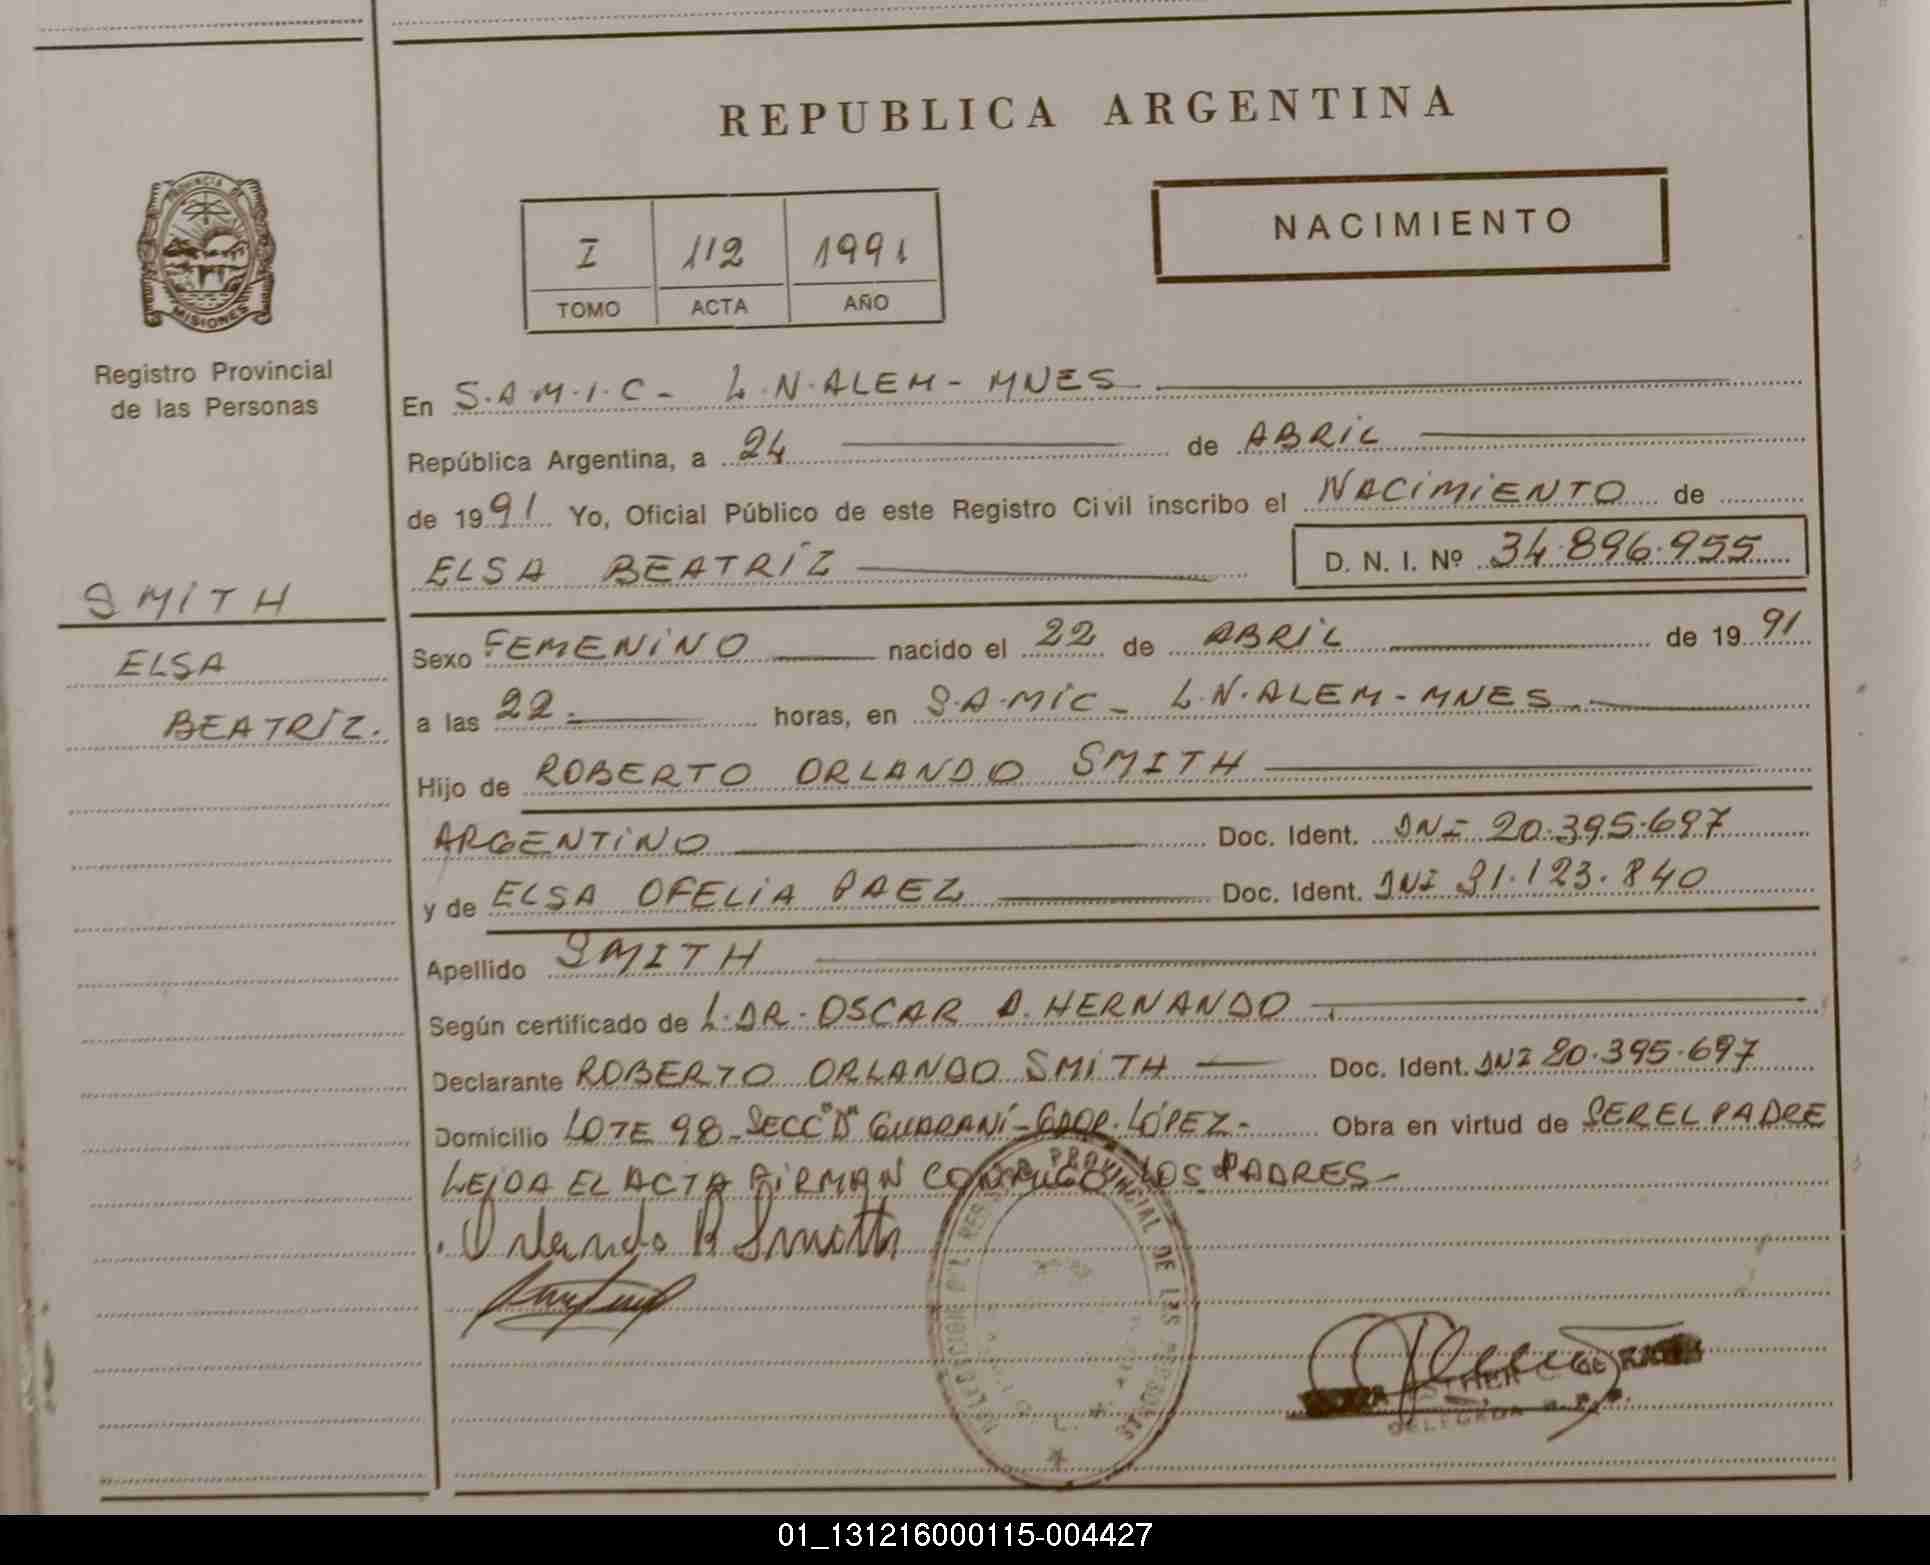 REPUBLICA ARGENTINA
PROVINCIA DE
MISIONES
Registro Provincial
de las Personas
I 112 1991
TOMO ACTA AÑO
NACIMIENTO
En S.A.M.I.C- L.N.ALEM-MNES
República Argentina, a 24 de ABRIL
de 1991 Yo, Oficial Público de este Registro Civil inscribo el NACIMIENTO de
ELSA BEATRIZ D. N. I. Nº 34.896.955
SMITH
ELSA
BEATRIZ.
Sexo FEMENINO nacido el 22 de ABRIL de 1991
a las 22. horas, en S.A.MIC- L.N.ALEM-MNES
Hijo de ROBERTO ORLANDO SMITH
ARGENTINO Doc. Ident. DNI 20.395.697
y de ELSA OFELIA PAEZ Doc. Ident. DNI 91.123.840
Apellido SMITH
Según certificado de L.DR.OSCAR D. HERNANDO
Declarante ROBERTO ORLANDO SMITH Doc. Ident. DNI 20.395.697
Domicilio LOTE 98-SECC"D" GUARANÍ-GDOR.LÓPEZ- Obra en virtud de SER EL PADRE
LEIDA EL ACTA FIRMAN CONMIGO LOS PADRES-
Orlando R Smith
PROVINCIAL DE LAS
ESTHER C. DE
DELEGADA
01_131216000115-004427